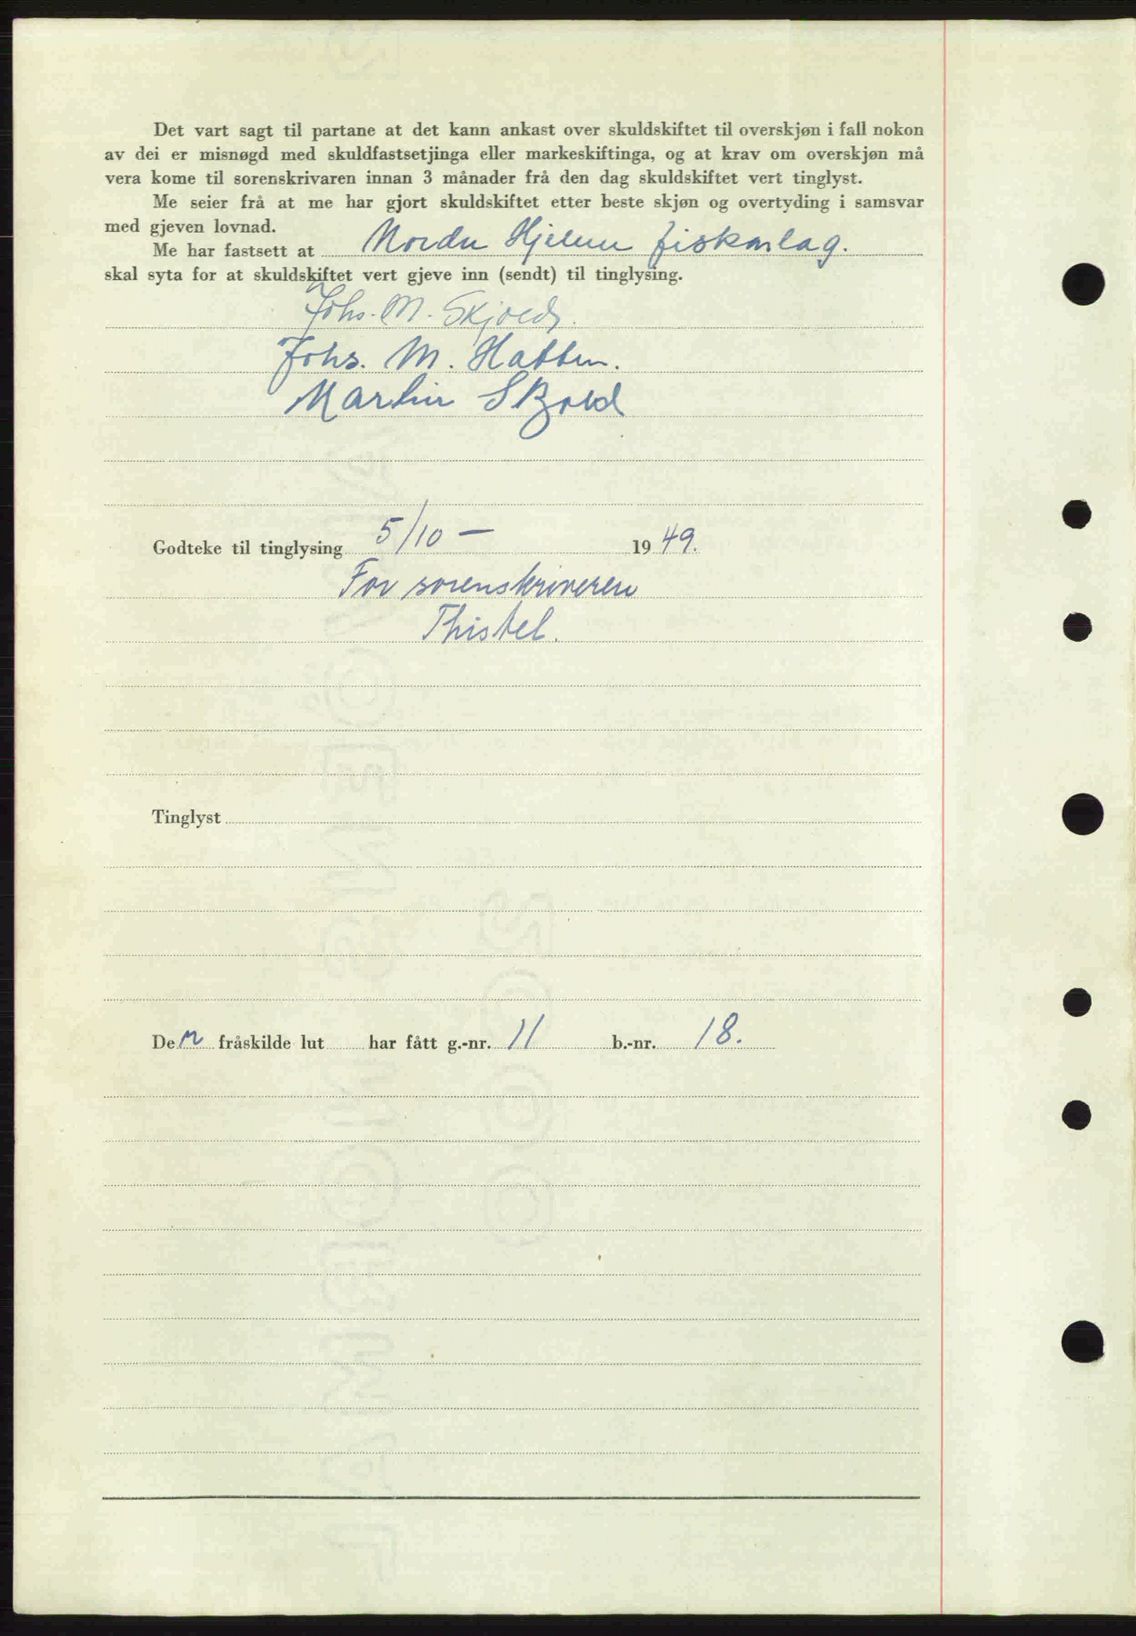 Det vart sagt til partane at det kann ankast over skuldskiftet til overskjøn i fall nokon
av dei er misnøgd med skuldfastsetjinga eller markeskiftinga, og at krav om overskjøn må
vera kome til sorenskrivaren innan 3 månader frå den dag skuldskiftet vert tinglyst.
Me seier frå at me har gjort skuldskiftet etter beste skjøn og overtyding i samsvar
med gjeven lovnad.
Me har fastsett at Nordre Hjelme fiskarlag.
skal syta for at skuldskiftet vert gjeve inn (sendt) til tinglysing.
Johs. M. Skjold.
Johs. M. Hatten.
Martin Skjold
Godteke til tinglysing 5/10 — 1949.
For sorenskriveren
Thistel.
Tinglyst
Den fråskilde lut har fått g.-nr. 11 b.-nr. 18.